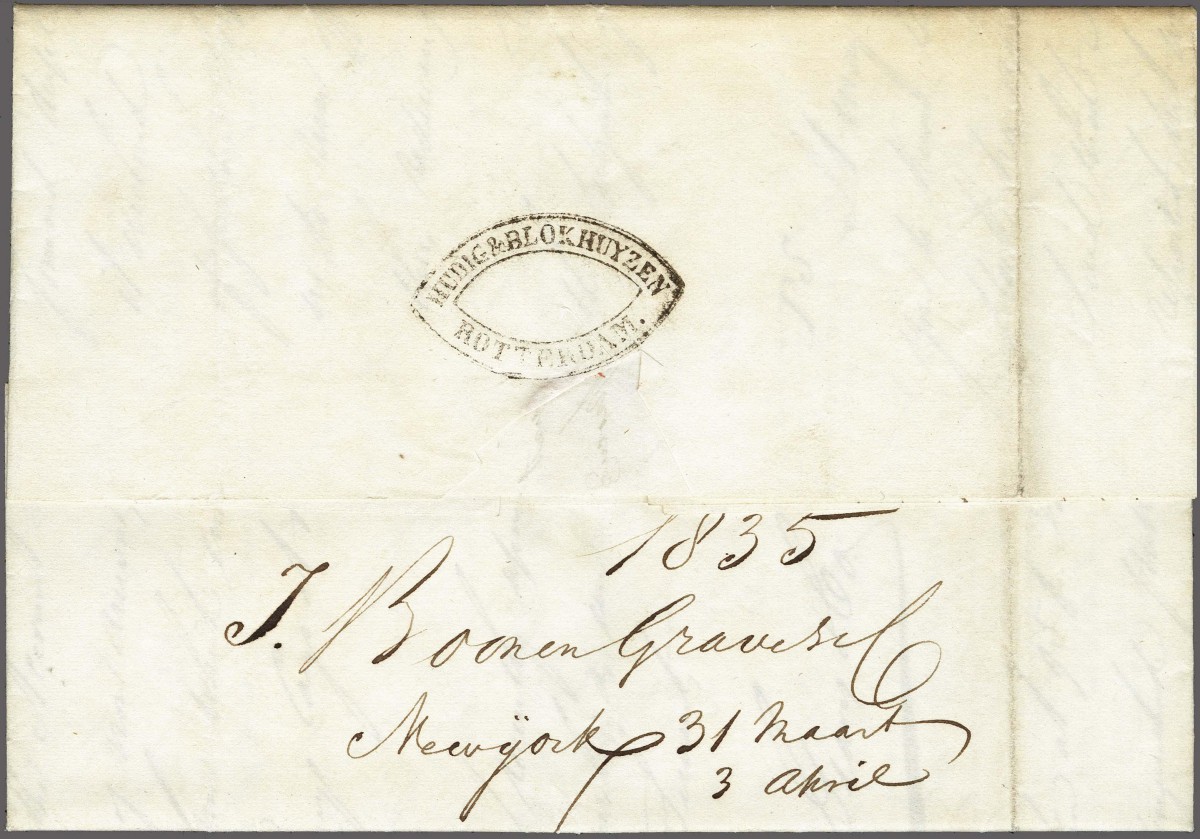 HUDIG & BLOKHUYZEN
ROTTERDAM.
1835
J. Boonen Graves & C
Newÿork 31 Maart
3 April